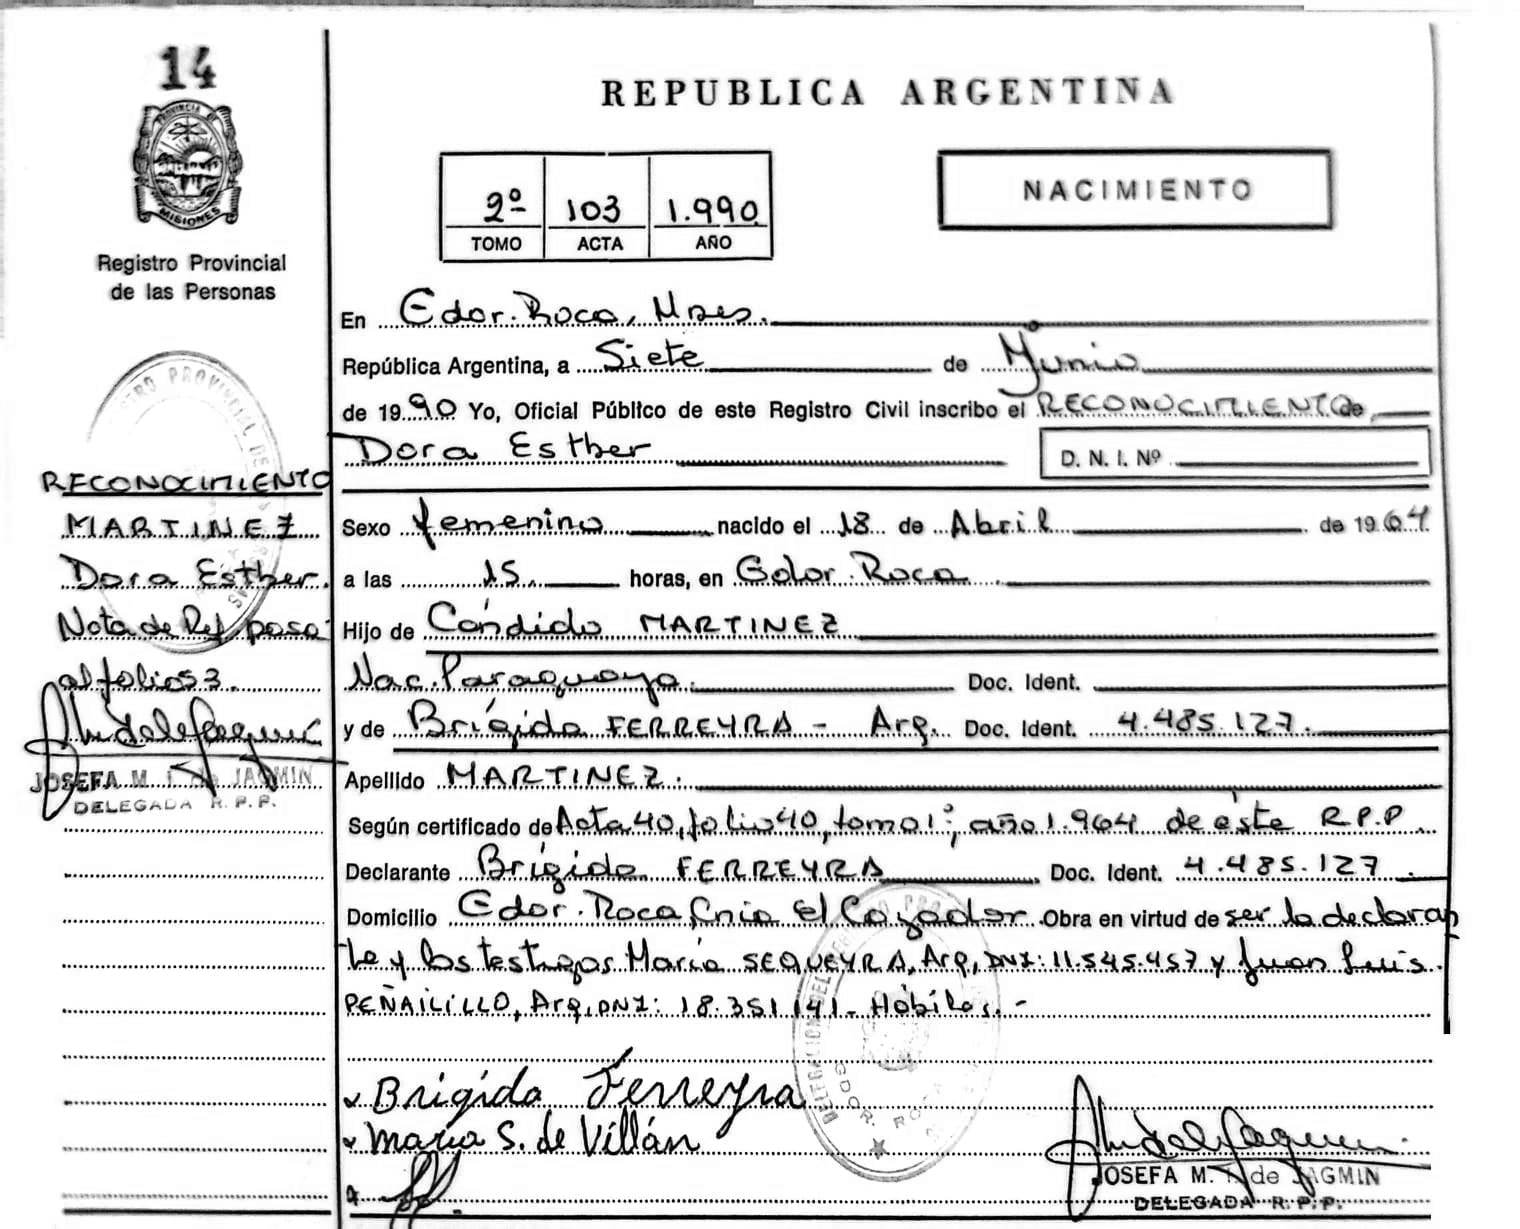 14
PROVINCIA DE
MISIONES
Registro Provincial
de las Personas
REPUBLICA ARGENTINA
2º 103 1.990
TOMO ACTA AÑO
NACIMIENTO
En Gdor. Roca, Mnes.
República Argentina, a Siete de Junio
de 1990 Yo, Oficial Público de este Registro Civil inscribo el RECONOCIMIENTO de
Dora Esther D. N. I. Nº
Sexo femenino nacido el 18 de Abril de 1964
a las 15 horas, en Gdor. Roca
Hijo de Cándido MARTINEZ
Nac. Paraguaya. Doc. Ident.
y de Brígida FERREYRA - Arg. Doc. Ident. 4.485.127.
Apellido MARTINEZ.
Según certificado de Acta 40, folio 40, tomo 1º, año 1.964 de éste R.P.P.
Declarante Brígida FERREYRA Doc. Ident. 4.485.127
Domicilio Gdor. Roca, Cnia El Cazador. Obra en virtud de ser la declaran
te y los testigos María SEQUEYRA, Arg, DNI: 11.545.457 y Juan Luis
PEÑAILILLO, Arg. DNI: 18.351.141 - Hábiles. -
Brigida Ferreyra
maria S. de Villán
JOSEFA M. de JAGMIN
DELEGADA R. P. P.
RECONOCIMIENTO
MARTINEZ
Dora Esther.
Nota de Ref. pasa
al folio 53.
JOSEFA M. de JAGMIN
DELEGADA R. P. P.
REGISTRO PROVINCIAL DE
GDOR. ROCA